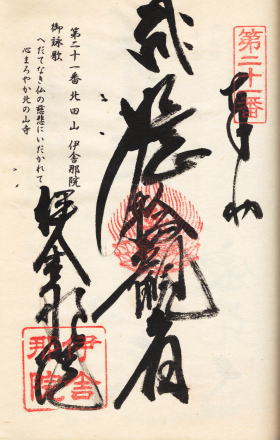 第二十一番
奉拝
弐 如意輪観音
伊舎那院
伊舎
那院
第二十一番 北田山 伊舎那院
御詠歌
へだてなき仏の慈悲にいだかれて
心まろやか北の山寺